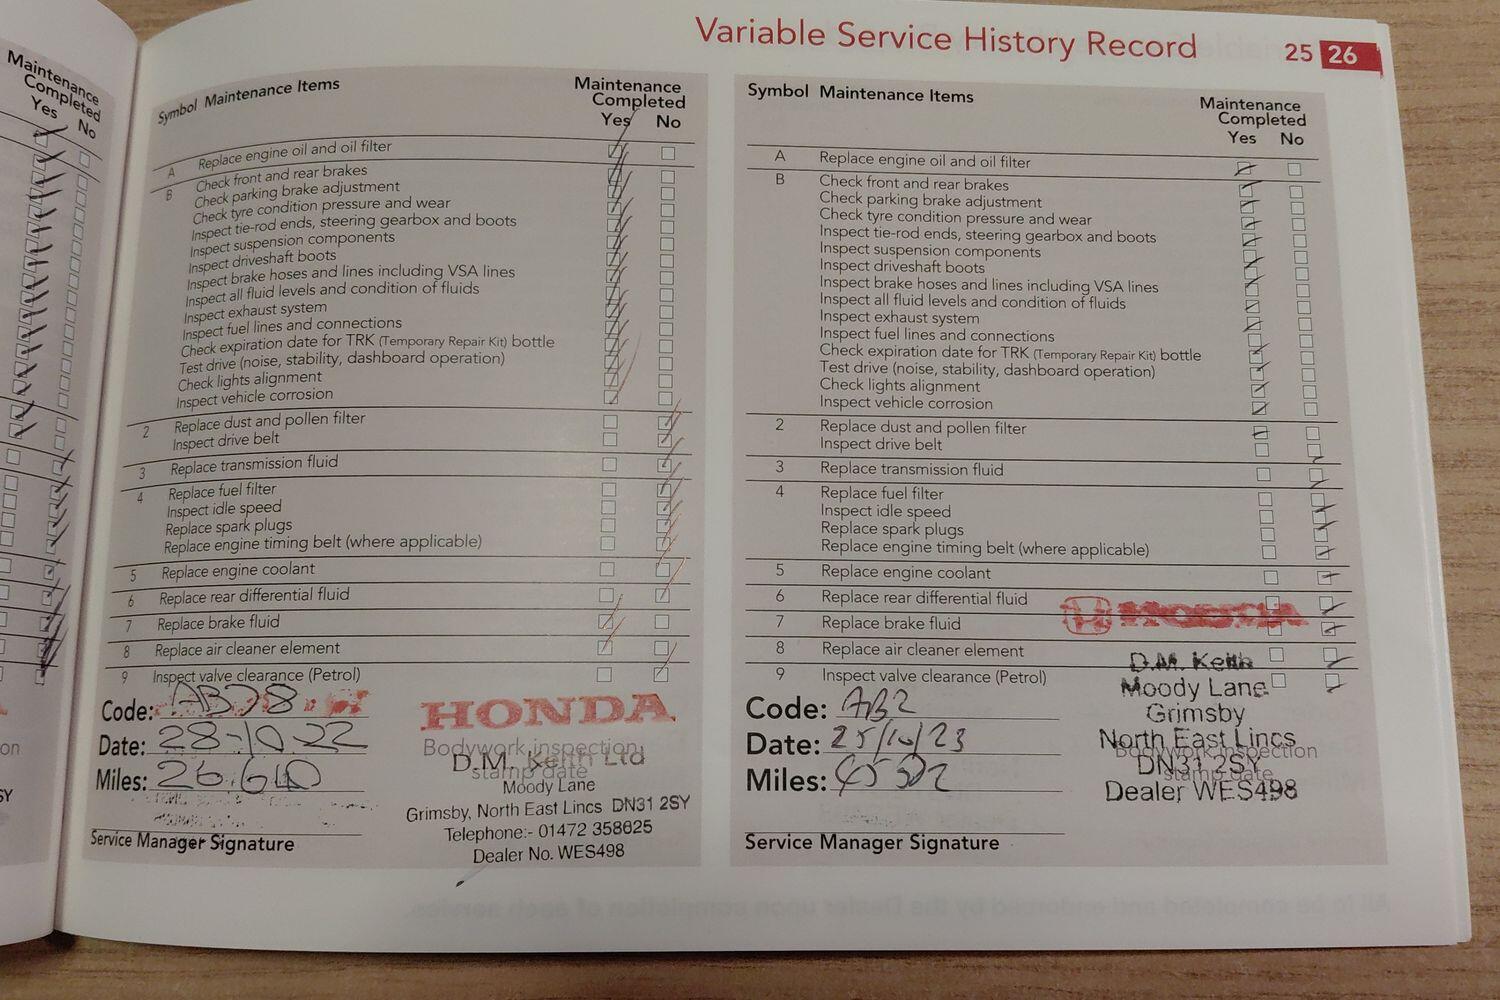 Variable Service History Record 25 26
Maintenance
Completed
Yes No
Symbol Maintenance Items
Maintenance
Completed
Yes No
A Replace engine oil and oil filter
B Check front and rear brakes
Check parking brake adjustment
Check tyre condition pressure and wear
Inspect tie-rod ends, steering gearbox and boots
Inspect suspension components
Inspect driveshaft boots
Inspect brake hoses and lines including VSA lines
Inspect all fluid levels and condition of fluids
Inspect exhaust system
Inspect fuel lines and connections
Check expiration date for TRK (Temporary Repair Kit) bottle
Test drive (noise, stability, dashboard operation)
Check lights alignment
Inspect vehicle corrosion
2 Replace dust and pollen filter
Inspect drive belt
3 Replace transmission fluid
4 Replace fuel filter
Inspect idle speed
Replace spark plugs
Replace engine timing belt (where applicable)
5 Replace engine coolant
6 Replace rear differential fluid
7 Replace brake fluid
8 Replace air cleaner element
9 Inspect valve clearance (Petrol)
Code: AB78
Date: 28-10-22
Miles:
Service Manager Signature
HONDA
Bodywork inspection
stamp date
D.M. Keith Ltd
Moody Lane
Grimsby, North East Lincs DN31 2SY
Telephone:- 01472 358625
Dealer No. WES498
Symbol Maintenance Items
Maintenance
Completed
Yes No
A Replace engine oil and oil filter
B Check front and rear brakes
Check parking brake adjustment
Check tyre condition pressure and wear
Inspect tie-rod ends, steering gearbox and boots
Inspect suspension components
Inspect driveshaft boots
Inspect brake hoses and lines including VSA lines
Inspect all fluid levels and condition of fluids
Inspect exhaust system
Inspect fuel lines and connections
Check expiration date for TRK (Temporary Repair Kit) bottle
Test drive (noise, stability, dashboard operation)
Check lights alignment
Inspect vehicle corrosion
2 Replace dust and pollen filter
Inspect drive belt
3 Replace transmission fluid
4 Replace fuel filter
Inspect idle speed
Replace spark plugs
Replace engine timing belt (where applicable)
5 Replace engine coolant
6 Replace rear differential fluid
7 Replace brake fluid
8 Replace air cleaner element
9 Inspect valve clearance (Petrol)
Code: AB2
Date: 25/10/23
Miles:
Service Manager Signature
HONDA
D.M. Keith
Moody Lane
Grimsby
North East Lincs
Bodywork inspection
DN31 2SY
stamp date
Dealer WES498